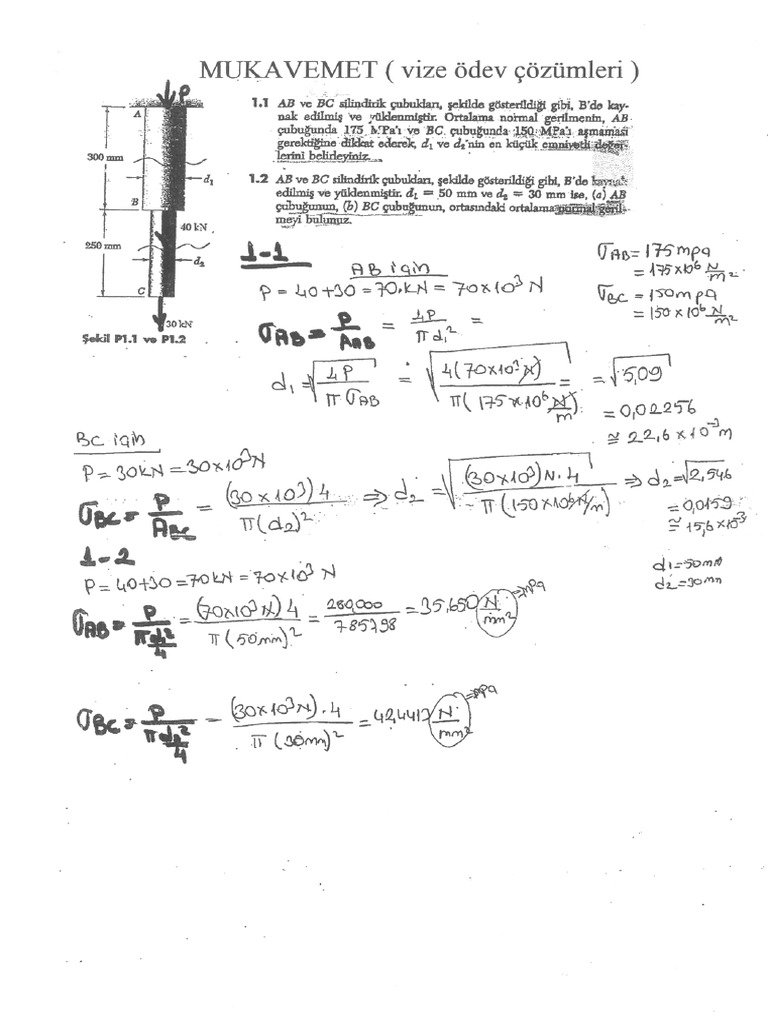 MUKAVEMET ( vize ödev çözümleri )
P
A
300 mm
d₁
B
40 kN
250 mm
d₂
C
30 kN
Şekil P1.1 ve P1.2
1.1 AB ve BC silindirik çubukları, şekilde gösterildiği gibi, B'de kay-
nak edilmiş ve yüklenmiştir. Ortalama normal gerilmenin, AB
çubuğunda 175 MPa'ı ve BC çubuğunda 150 MPa'ı aşmaması
gerektiğine dikkat ederek, d₁ ve d₂'nin en küçük emniyetli değer-
lerini belirleyiniz.
1.2 AB ve BC silindirik çubukları, şekilde gösterildiği gibi, B'de kaynak
edilmiş ve yüklenmiştir. d₁ = 50 mm ve d₂ = 30 mm ise, (a) AB
çubuğunun, (b) BC çubuğunun, ortasındaki ortalama normal geril-
meyi bulunuz.
1-1
AB için
P = 40+30 = 70.kN = 70x10³ N
σAB = 175 mpa
= 175x10⁶ N/m²
σBC = 150mpa
= 150x10⁶ N/m²
σAB = P/AAB = 4P/πd₁² =
d₁ = √(4P/πσAB) = √(4(70x10³ N)/π(175x10⁶ N/m)) = = √5,09
= 0,02256
≅ 22,6 x 10⁻³ m
BC için
P = 30kN = 30x10³N
σBC = P/ABC = (30x10³)4/π(d₂)² ⇒ d₂ = √((30x10³)N.4/π(150x10⁶N/m)) ⇒ d₂ = √2,546
= 0,0159
≅ 15,6x10⁻³
1-2
P = 40+30 = 70kN = 70x10³ N
d₁ = 50mm
d₂ = 30mm
σAB = P/(πd₁²/4) = (70x10³ N)4/π(50mm)² = 280,000/785398 = 35,650 N/mm² ⇒ mPa
σBC = P/(πd₂²/4) = (30x10³N).4/π(30mm)² = 42,4413 N/mm² ⇒ mPa